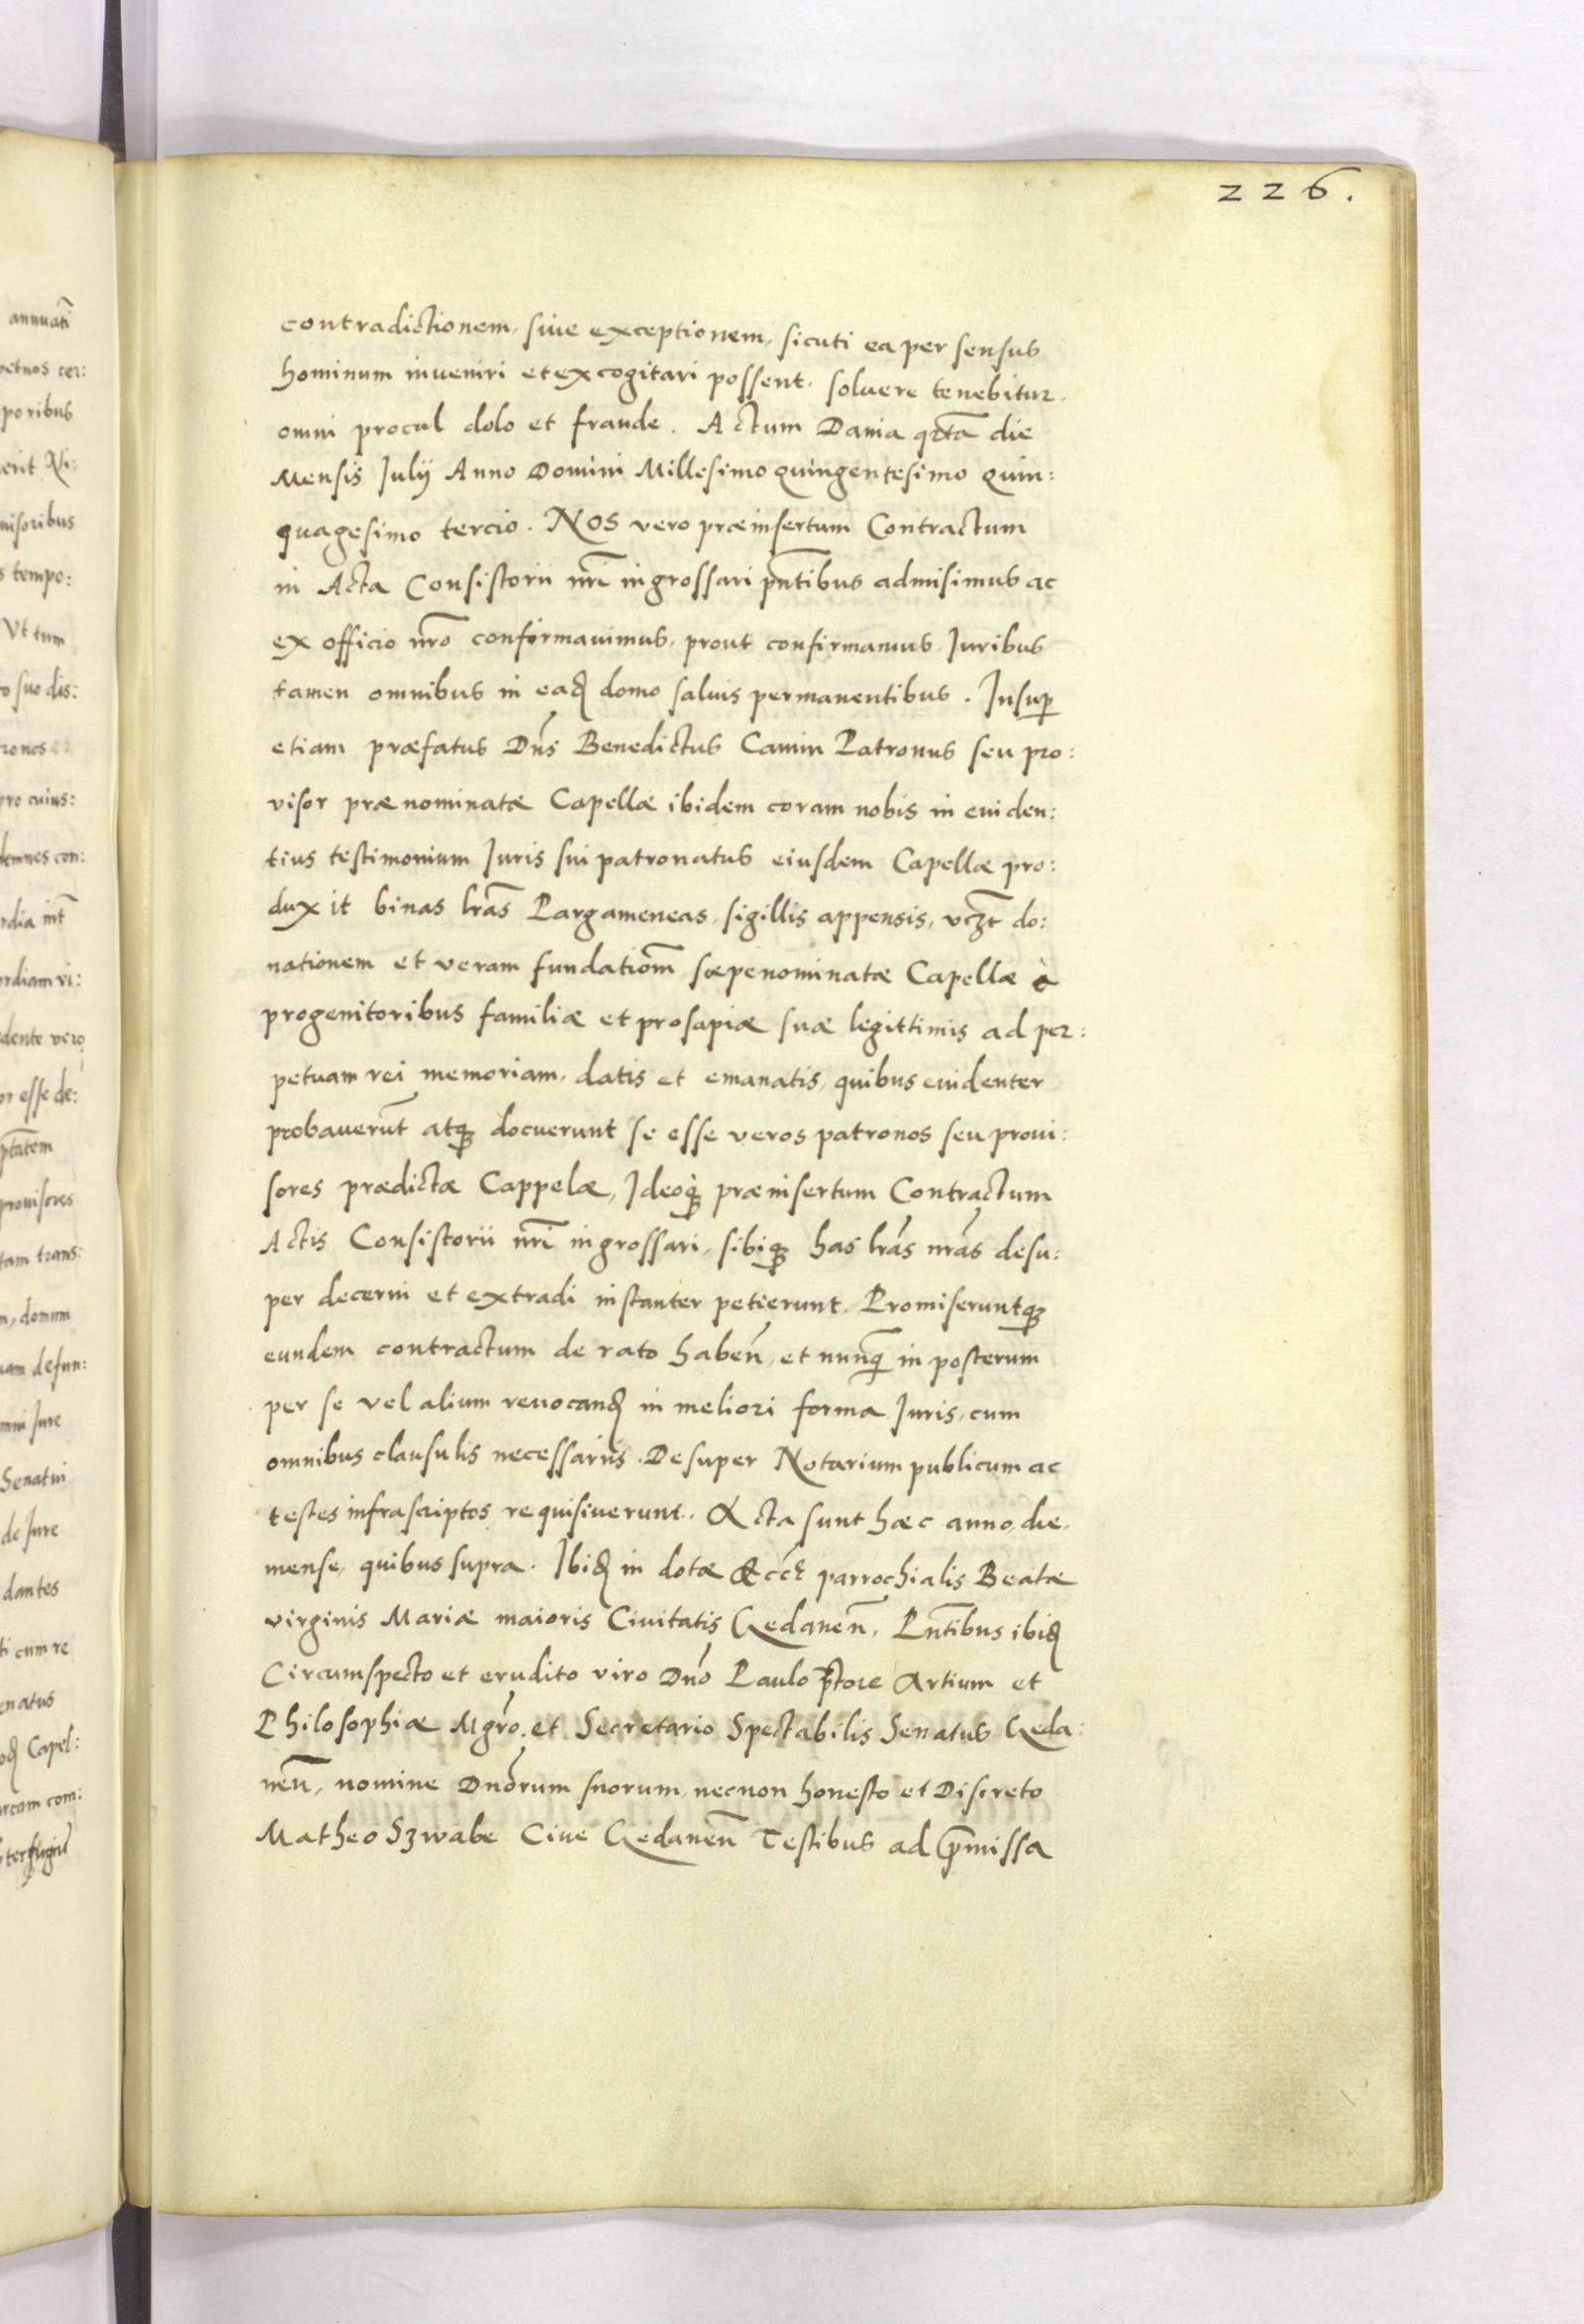 226.
contradictionem, siue exceptionem, sicuti ea per sensus
hominum inueniri et excogitari possent, soluere tenebitur,
omni procul dolo et fraude. Actum Dania qrta die
Mensis Julij Anno Domini Millesimo quingentesimo quin:
quagesimo tercio. NOS vero præinsertum Contractum
in Acta Consistorii nrĩ ingrossari pñtibus admisimus ac
ex officio nrõ confirmauimus, prout confirmamus Juribus
tamen omnibus in eaď domo saluis permanentibus. Insup
etiam præfatus Dñs Benedictus Camin Patronus seu pro:
visor prænominatæ Capellæ ibidem coram nobis in euiden:
tius testimonium Juris sui patronatus eiusdem Capellæ pro:
duxit binas lrãs Pargameneas, sigillis appensis, vczt do:
nationem et veram fundatiom̃ sæpenominatæ Capellæ à
progenitoribus familiæ et prosapiæ suæ legittimis ad per:
petuam rei memoriam, datis et emanatis, quibus euidenter
probauerũt atq; docuerunt se esse veros patronos seu proui:
sores prædictæ Cappelæ, Ideoq; præinsertum Contractum
Actis Consistorii nrĩ ingrossari, sibiq; has lrãs nrãs desu:
per decerni et extradi instanter petierunt. Promiseruntq;
eundem contractum de rato habeñ, et nunq̃ in posterum
per se vel alium reuocanď in meliori forma Juris, cum
omnibus clausulis necessariis. Desuper Notarium publicum ac
testes infrascriptos requisiuerunt. Acta sunt hæc anno, die,
mense, quibus supra. Ibiď in dotæ Eccĩ parrochialis Beatæ
virginis Mariæ maioris Ciuitatis Gedaneñ, Pñtibus ibiď
Circumspecto et erudito viro Dnõ Paulo p̃tore Artium et
Philosophiæ Mgrõ, et Secretario Spectabilis Senatus Geda:
neñ, nomine Dnõrum suorum, necnon honesto et Discreto
Matheo Szwabe Ciue Gedaneñ Testibus ad p̃missa